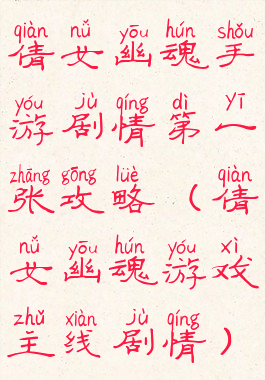 qiàn nǚ yōu hún shǒu
倩女幽魂手
yóu jù qíng dì yī
游剧情第一
zhāng gōng lüè qiàn
张攻略（倩
nǚ yōu hún yóu xì
女幽魂游戏
zhǔ xiàn jù qíng
主线剧情）